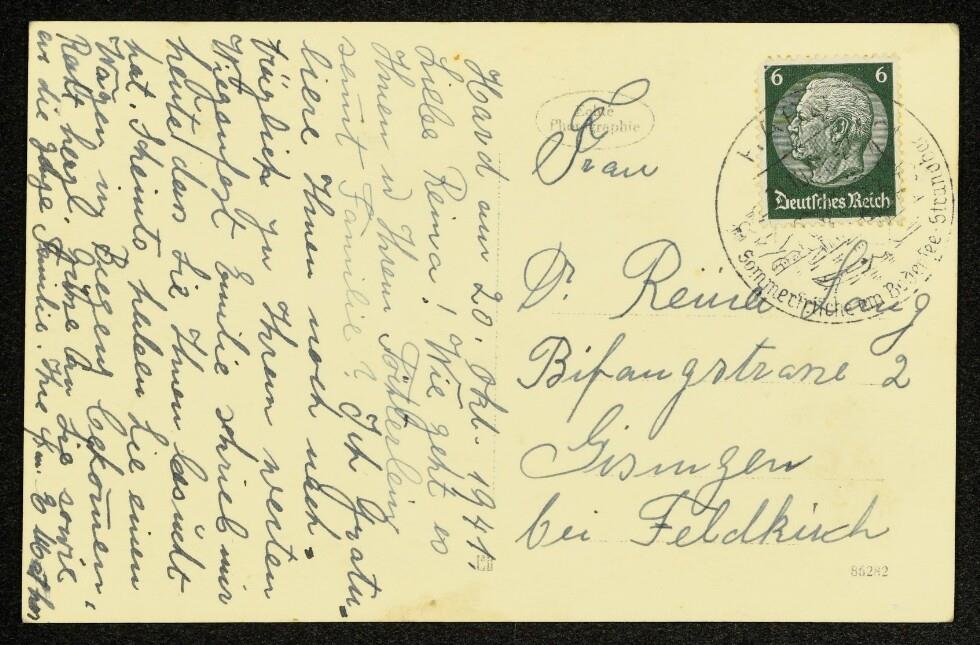 Hard am 20. Okt. 1941.
Liebe Reina! Wie geht es
Ihnen u Ihrem Töchterlein
samt Familie? Ich Gratu-
liere Ihnen noch nach-
träglich zu Ihrem werten
Wiegenfest Emilie schrieb mir
heute das Sie Ihnen besucht
hat. Scheints haben Sie einen
Wagen ing Biegens bekommen.
Recht herzl. Grüße an Sie sowie
an die gdze Familie. Ihre fm.
Echte
Photographie
Frau
D. Reina Lang
Bifangstrasse 2
Gisingen
bei Feldkirch
6 6
Deutsches Reich
Sommerfrische am Bodensee-Strandbad
86282